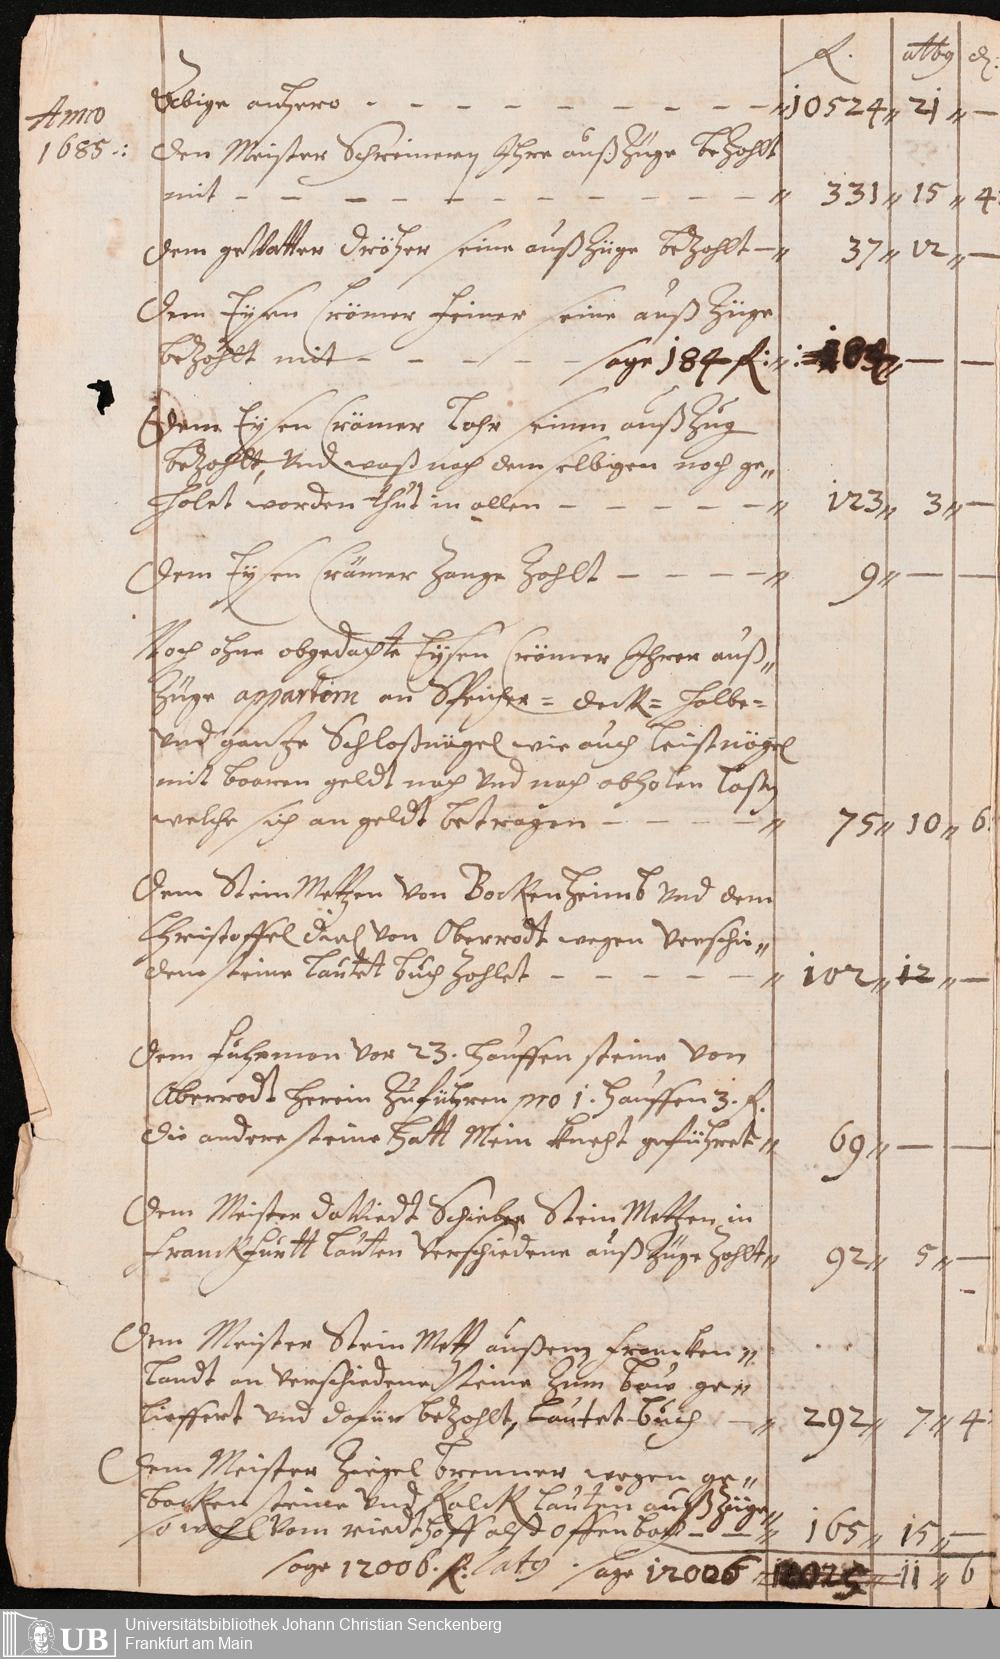 fl. albg d.
Anno
1685.:
Übige anhero - - - - - - - - - - " 10524 " 21 " —
den Meister Schreinern Ihre außzüge bezahlt
mit - - - - - - - - - - - " 331 " 15 " 4
dem gevatter Dröher seine außzüge bezahlt — " 37 " 12 " —
dem Eysen Crömer Heiner seine auß züge
bezahlt mit - - - - - sage 184 fl: " — —
dem Eysen Crömer Lahr seinen außzug
bezahlt, Und waß nach dem selbigen noch ge"
holet worden thut in allen - - - - - " 123 " 3 " —
dem Eysen Crämer Zange Zahlt - - - - " 9 " — —
Noch ohne obgedachte Eysen Crömer Ihrer auß"
züge appartem an Speicher= deck= halbe=
und gantze Schloßnägel wie auch leistnägel
mit baaren geldt nach Und nach abholen laßen
welche sich an geldt betragen - - - - " 75 " 10 " 6
dem Stein Metzen Von Bockenheimb Und dem
Christoffel diel Von Oberrodt wegen Verschie"
dene steine lautet buch Zahlet - - - - - " 102 " 12 " —
dem fuhrman Vor 23. hauffen steine Von
Oberrodt herein Zuführen pro 1. hauffen 3. fl.
die andere steine hatt Mein knecht geführet " 69 " — —
dem Meister daviedt Schieber Stein Metzen in
franckfurtt lauten Verschiedene auß züge Zahlt " 92 " 5 " —
dem Meister Stein Metz außem francken"
landt an Verschiedene steine Zum bau ge"
lieffert Und dafür bezahlt, lautet buch — " 292 " 7 " 4
dem Meister Ziegel brenner wegen ge"
backen steine Und Kalck lauten außzüge
so wohl Vom riedthoff alß offenbach - - " 165 " 15 " —
sage 12006. fl: latg. sage 12006 " 11 " 6
UB Universitätsbibliothek Johann Christian Senckenberg
Frankfurt am Main